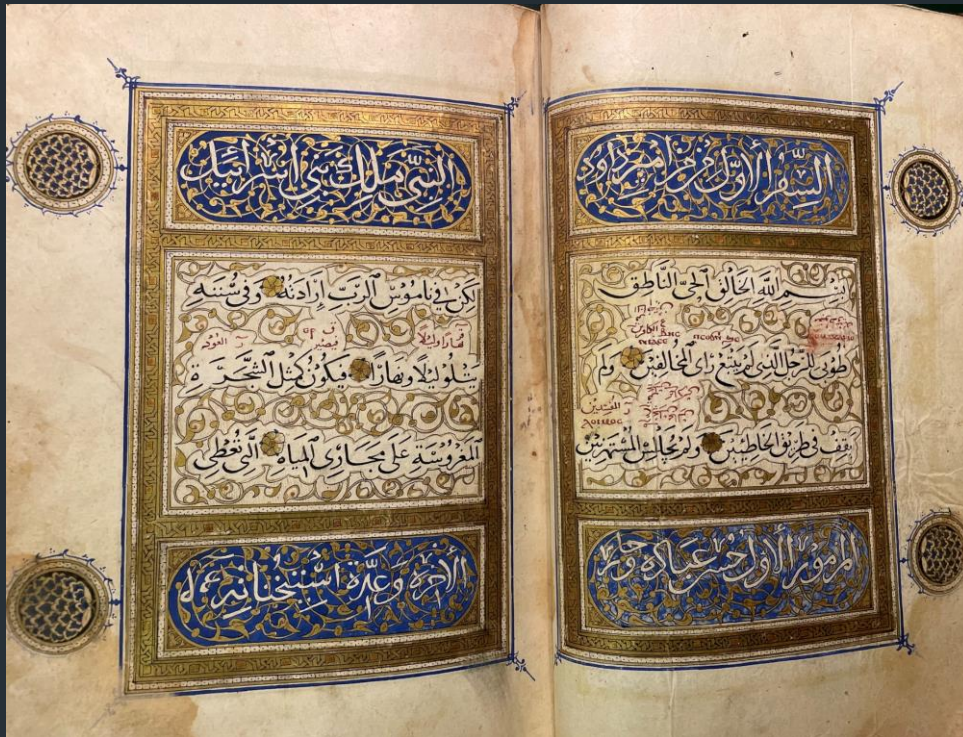 السِّفر الأوّل من مزامير داود
بسم الله الخالق الحيّ النّاطق
طوبى للرجل الذي لم يتبع راى المخالفين ولم
يقف في طريق الخاطيين ولم يجالس المستهزيين
المزمور الاول عباده
النبيّ ملك بني اسرائيل
لكن في ناموس الرب إرادته وفي سننه
نهارا وليلا فيصير العود
يتلو ليلًا ونهارًا فيكون كمثل الشجرة
المغروسة على مجاري المياه التي تعطي
الأخرة وعدّة